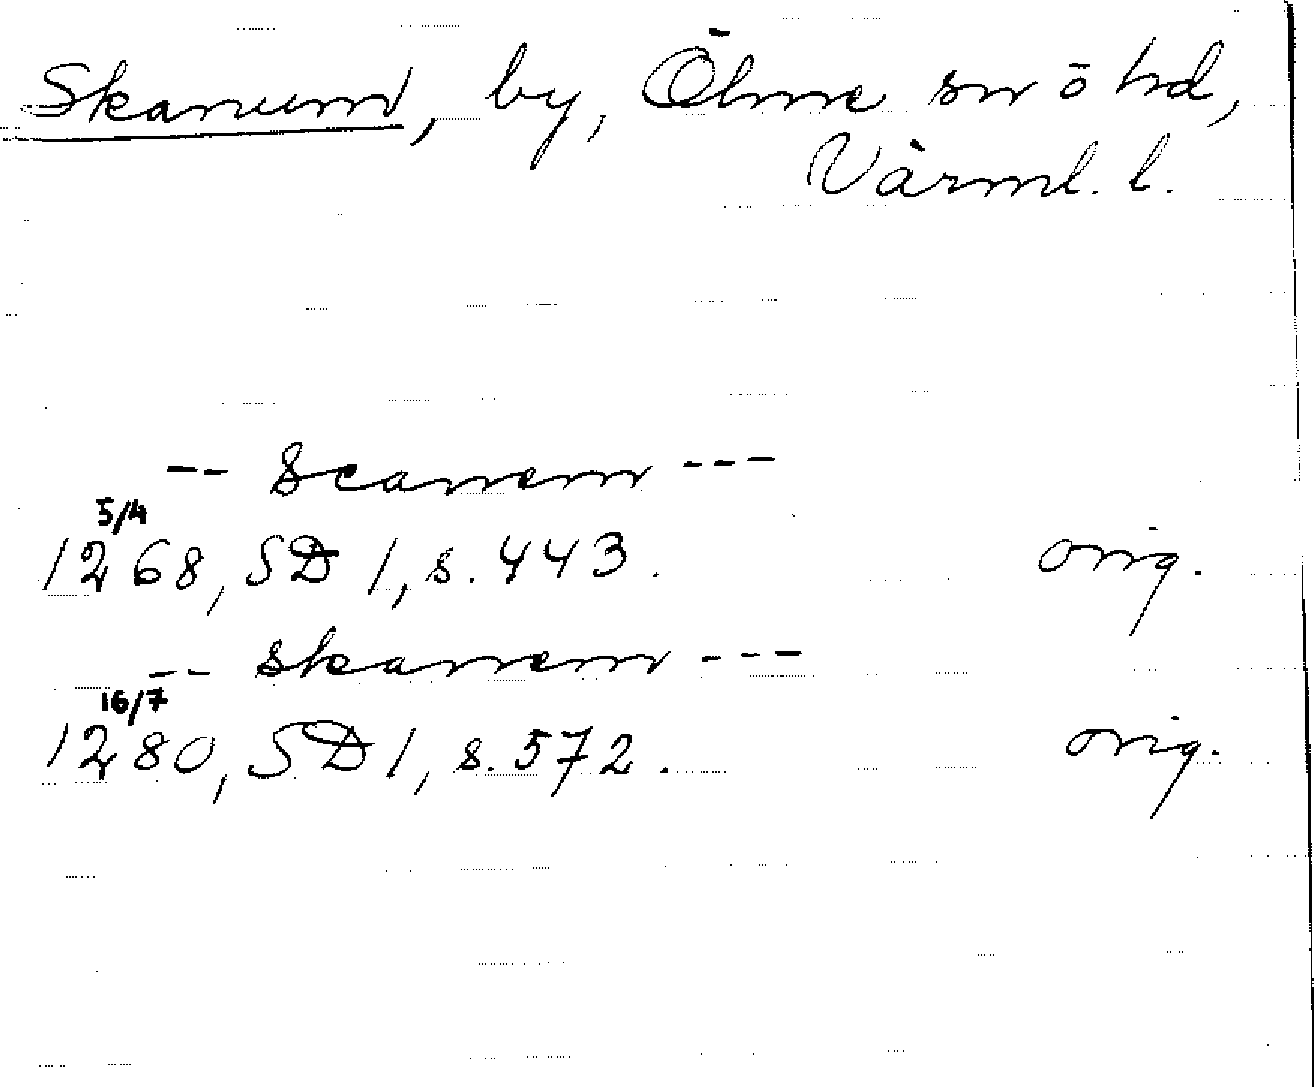 Skanum, by, Ölme sn ö hd,
Värml. l.
-- Scanem ---
5/4
1268, SD 1, s. 443. orig.
-- skanem ---
16/7
1280, SD 1, s. 572. orig.